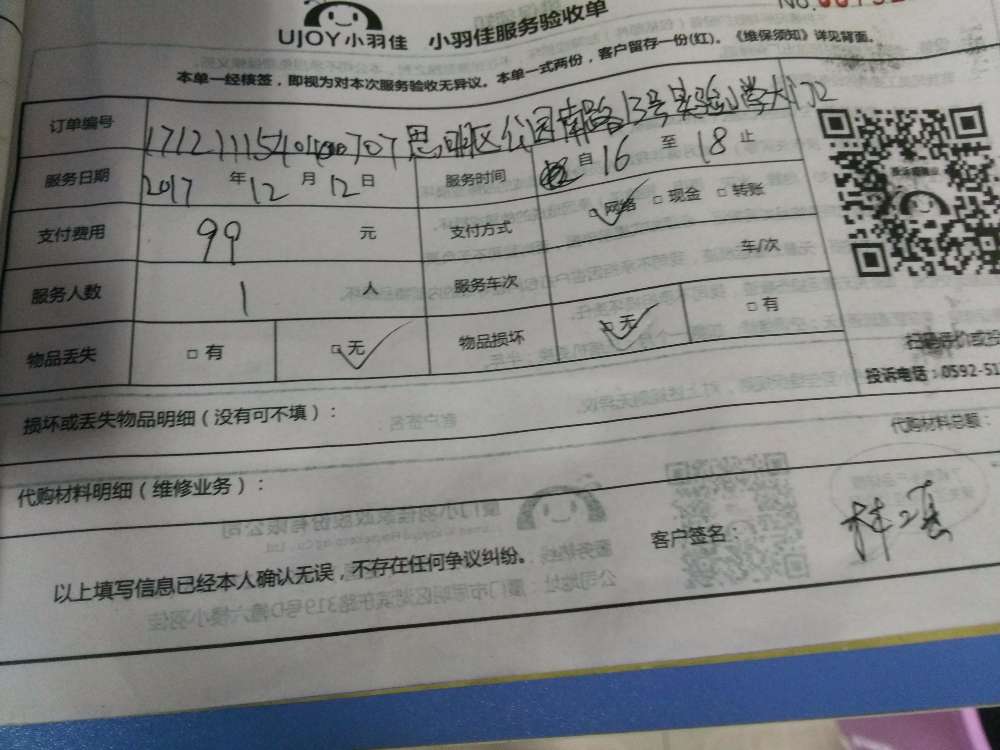 No.
UJOY小羽佳 小羽佳服务验收单
本单一经核签，即视为对本次服务验收无异议。本单一式两份，客户留存一份(红)。《维保须知》详见背面。
订单编号 思明区公园南路13号实验小学大门口
服务日期 2017 年 12 月 12 日 服务时间 自 16 至 18 止
支付费用 99 元 支付方式 □ 网络 □ 现金 □ 转账
服务人数 1 人 服务车次 车/次
物品丢失 □ 有 □ 无 物品损坏 □ 无 □ 有
投诉电话：0592-51
损坏或丢失物品明细（没有可不填）：
代购材料总额：
代购材料明细（维修业务）：
客户签名：
以上填写信息已经本人确认无误，不存在任何争议纠纷。